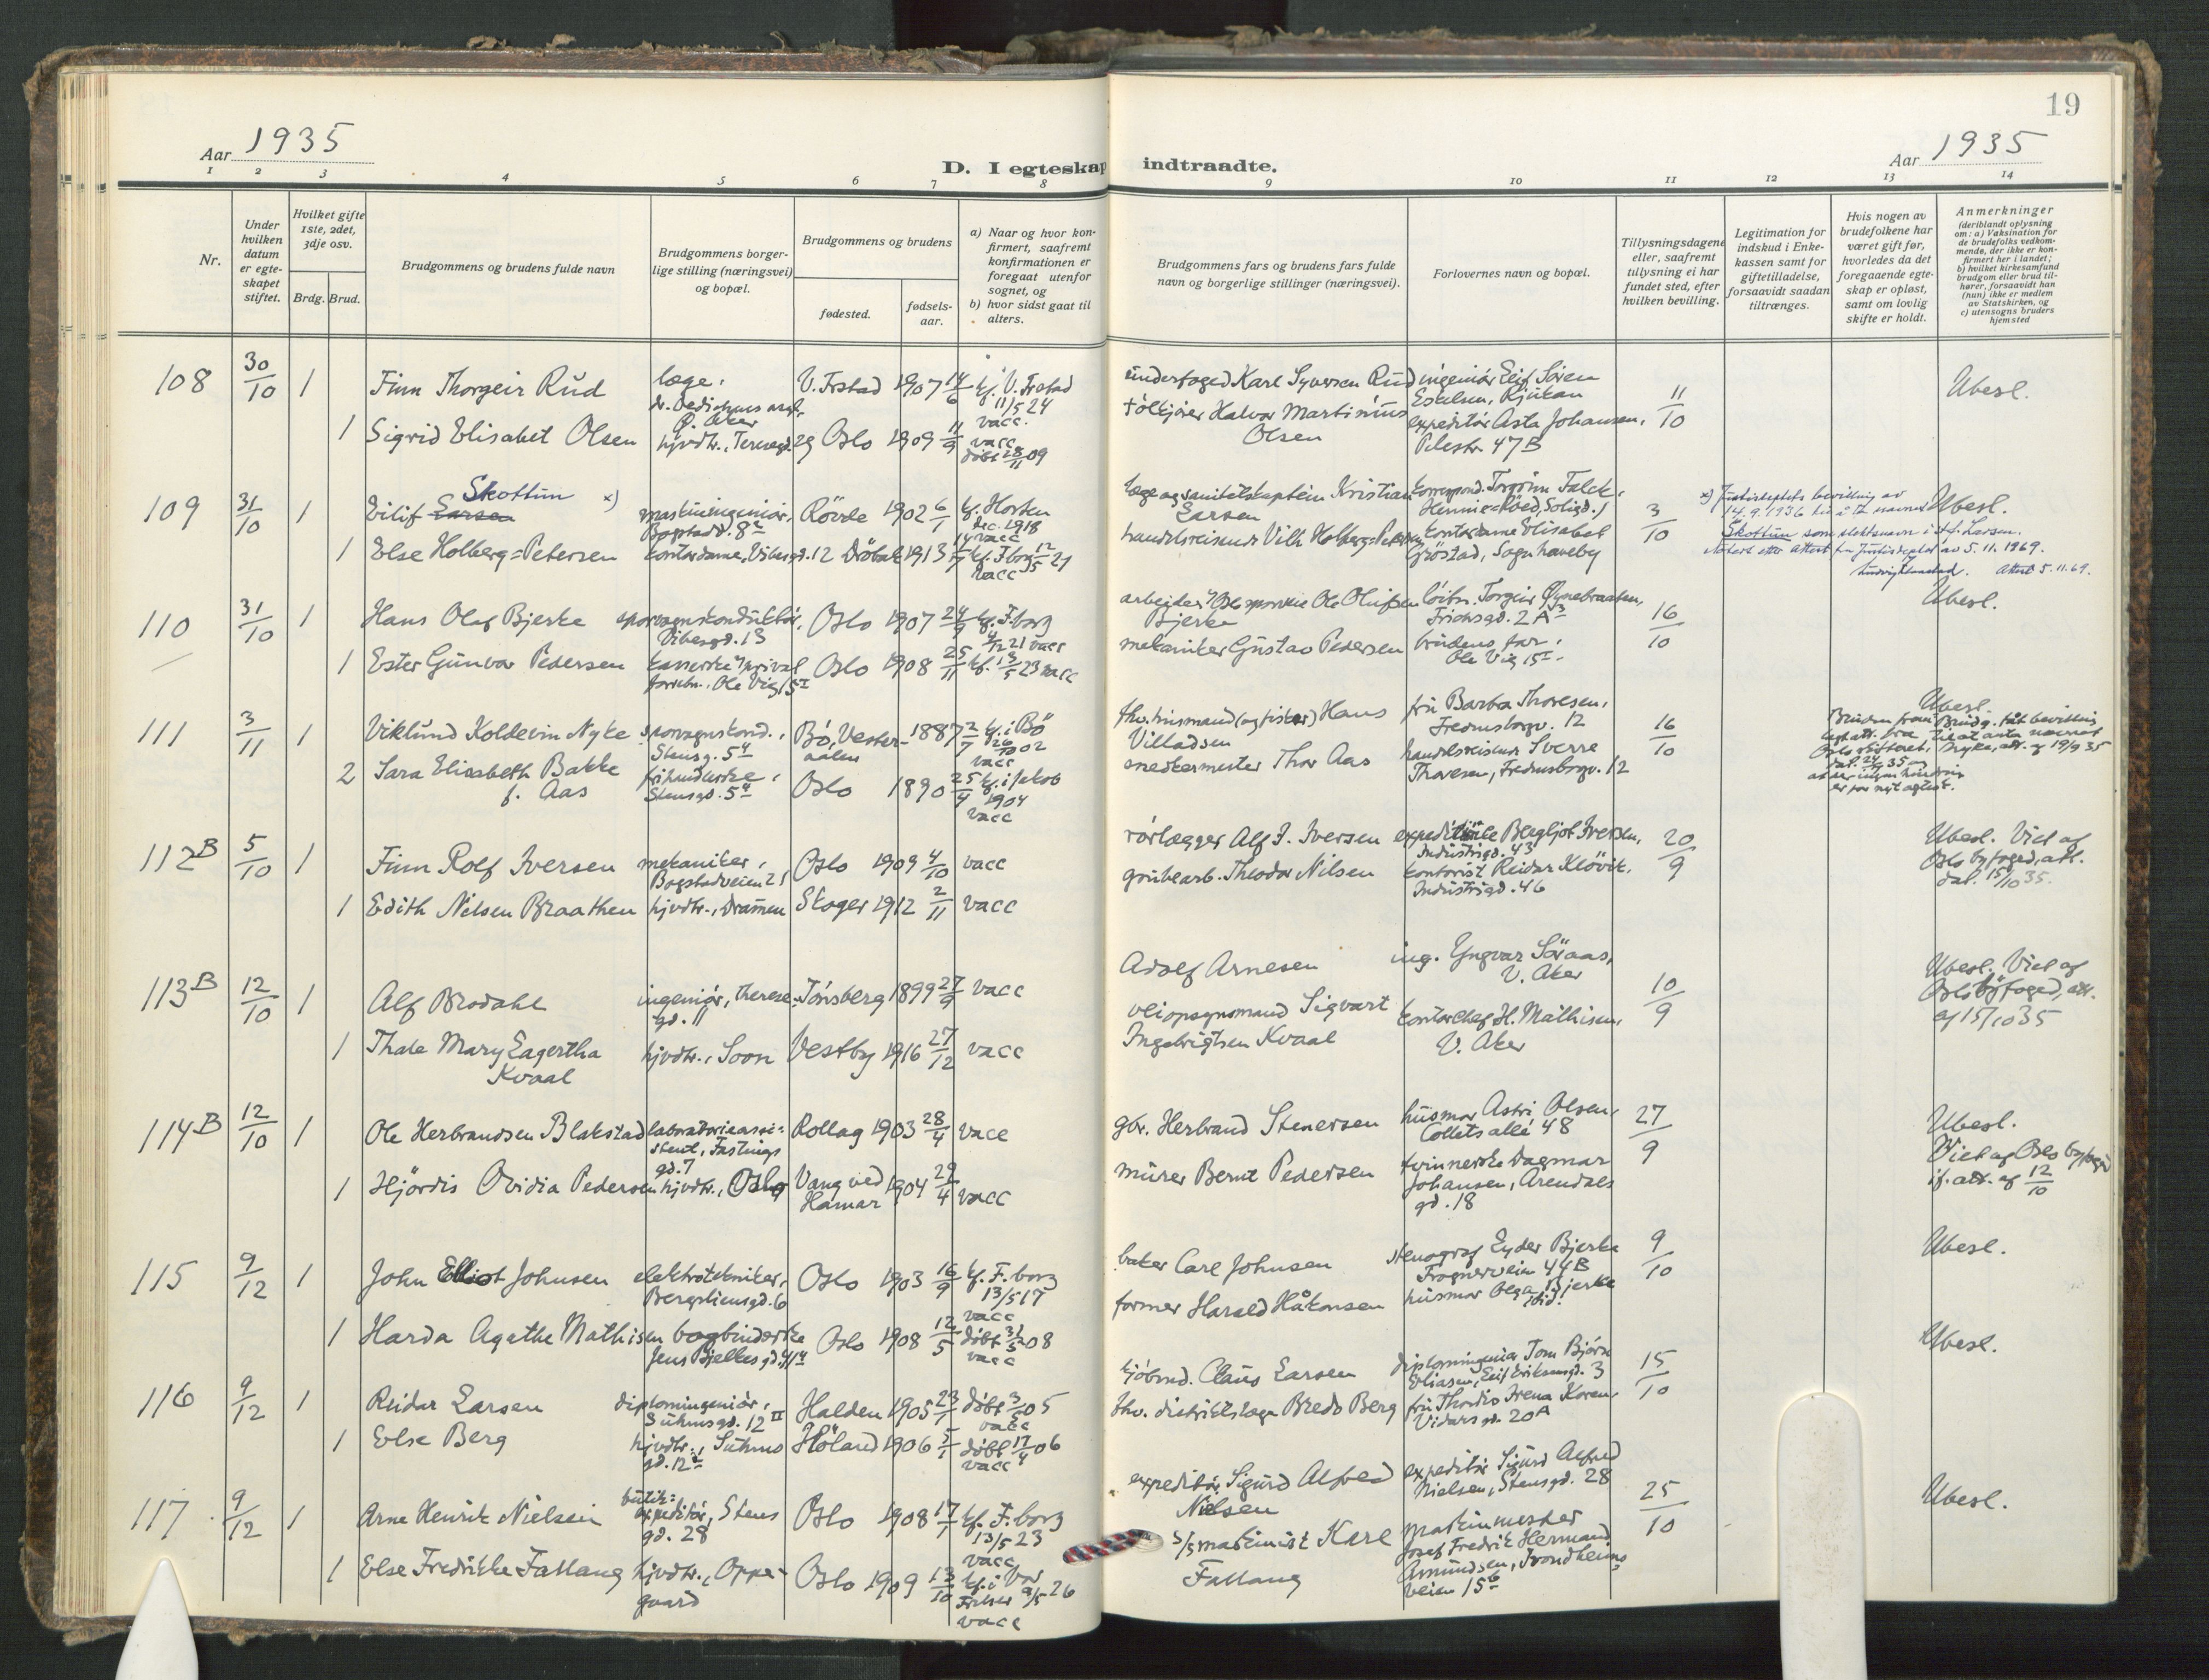 19
Aar 1935
D. I egteskap indtraadte.
Aar 1935
1 2 3 4 5 6 7 8 9 10 11 12 13 14
Nr.
Under hvilken datum er egteskapet stiftet.
Hvilket gifte 1ste, 2det, 3dje osv.
Brdg. Brud.
Brudgommens og brudens fulde navn
Brudgommens borgerlige stilling (næringsvei) og bopæl.
Brudgommens og brudens
fødested.
fødselsaar.
a) Naar og hvor konfirmert, saafremt konfirmationen er foregaat utenfor sognet, og
b) hvor sidst gaat til alters.
Brudgommens fars og brudens fars fulde navn og borgerlige stillinger (næringsvei).
Forlovernes navn og bopæl.
Tillysningsdagene eller, saafremt tillysning ei har fundet sted, efter hvilken bevilling.
Legitimation for indskud i Enkekassen samt for giftetilladelse, forsaavidt saadan tiltrænges.
Hvis nogen av brudefolkene har været gift før, hvorledes da det foregaaende egteskap er opløst, samt om lovlig skifte er holdt.
Anmerkninger
(deriblandt oplysning om: a) Vaksination for de brudefolks vedkommende, der ikke er konfirmert her i landet; b) hvilket kirkesamfund brudgom eller brud tilhører, forsaavidt han (hun) ikke er medlem av Statskirken, og c) utensogns bruders hjemsted
108 30/10 1 Finn Thorgeir Rud læge, V. Frstad 1907 14/6 kf. V. Frstad 11/5 24 vacc. underfoged Karl Syversen Rud ingeniør Leif Sören Eskelsen, Rjukan 11/10 Ubesl.
1 Sigrid Elisabet Olsen hjvdtr., 29 Oslo 1909 11/9 vacc døbt 28/11 09 Halvor Martinius Olsen expeditör Asta Johansen, Pilestr. 47B
109 31/10 1 Eilif Larsen Skottun x) maskiningeniör, Bogstadv. 8 Rövde 1902 6/1 kf. Horten dec. 1918 vacc læge og sanitetskaptein Kristian Larsen korrespond. Torgrim Falck, 3/10 Ubesl.
x) Justisdeptets bevilling av 14.9.1936 til å ta navnet Skottun som slektsnavn i st. f. Larsen.
Notert etter attest fra Justisdeptet av 5.11.1969.
Attest 5.11.69.
1 Else Holberg-Petersen kontordame, Vibesgd. 12 Dröbak 1913 kf. F.borg vacc handelsreisende Vilh. Holberg-Petersen kontordame Elisabet Gröstad, Sogn haveby
110 31/10 1 Hans Olaf Bjerke sporvognskonduktör, Vibesgd. 13 Oslo 1907 24/9 kf. F.borg 4/12 21 vacc arbejder Ole Olufsen Bjerke Torgeir Øynebraaten, Frichsgd. 2A 16/10 Ubesl.
1 Ester Gunvor Pedersen kassererske Ole Vig 15 I Oslo 1908 25/11 kf. 13/5 23 vacc mekaniker Gustav Pedersen brudens far, Ole Vig 15 I.
111 3/11 1 Viklund Koldevin Nyke sporvognskond., Stensg. 5 Bö, Vesteraalen 1887 2/7 kf. i Bö 1902 vacc fhv. husmand (og fisker) Hans Villadsen fru Barbra Thoresen, Fredensborgv. 12 16/10 Ubesl.
2 Sara Elisabeth Bakke f. Aas Stensgd. 5 Oslo 1890 25/4 kf. i Jakob 1904 vacc snedkermester Thor Aas handelsreisende Sverre Thoresen, Fredensborgv. 12
112B 5/10 1 Finn Rolf Iversen mekaniker, Bogstadveien 21 Oslo 1909 4/10 vacc rörlegger Alf J. Iversen Bergljot Iversen, Industrigd. 43 20/9 Ubesl. Viet af Oslo byfoged, att. dat. 15/10 35.
1 Edith Nilsen Braathen hjvdtr., Drammen Skoger 1912 2/11 vacc grubearb. Theodor Nilsen kontorist Reidar Klövik, Industrigd. 46
113B 12/10 1 Alf Brodahl ingeniör, Theresegd. 11 Tönsberg 1899 27/9 vacc Adolf Arnesen ing. Yngvar Söraas, V. Aker 10/9 Ubesl. Viet af Oslo byfoged, att. af 15/10 35
1 Thale Mary Eagertha Kvaal hjvdtr., Soon Vestby 1916 27/12 vacc veiopsynsmand Sigvart Ingebrigtsen Kvaal kontorchef H. Mathisen, V. Aker
114B 12/10 1 Ole Herbrandsen Blakstad laboratorieassistent, Fastingsgd. 7 Rollag 1903 28/4 vacc gbr. Herbrand Stenersen husmor Astri Olsen, Colletsallé 48 27/9 Ubesl. Viet af Oslo byfoged if. att. af 12/10
1 Hjördis Ovidia Pedersen hjvdtr., Oslo Vang ved Hamar 1904 29/4 vacc murer Bernt Pedersen tvinnerske Dagmar Johansen, Arendalsgd. 18
115 9/12 1 John Elliot Johnsen elektrotekniker, Bergsliensgd. 6 Oslo 1903 16/9 kf. F.borg 13/5 17 vacc baker Carl Johnsen stenograf Eyder Bjerke Frognerveien 44B 9/10 Ubesl.
1 Harda Agathe Mathisen bogbinderske Jens Bjelkesgd. Oslo 1908 12/5 døbt 31/5 08 vacc former Harald Håkonsen husmor Olga Bjerke ibid.
116 9/12 1 Reidar Larsen diplomingeniör, Suhmsgd. 12 II Halden 1905 23/1 døbt 3/5 05 vacc kjöbmd. Claus Larsen diplomingeniör Tom Björn Eliasen, Leif Eriksonsgd. 3 15/10 Ubesl.
1 Else Berg hjvdtr., Suhmsgd. 12 Höland 1906 5/1 døbt 17/4 06 vacc fhv. distriktslæge Bredo Berg fru Thordis Irena Koren, Vidarsgd. 20A
117 9/12 1 Arne Henrik Nielsen butikexpeditör, Stensgd. 28 Oslo 1908 17/1 kf. F.borg 13/5 23 vacc expeditör Sigurd Alfred Nielsen expeditör Sigurd Alfred Nielsen, Stensgd. 28 25/10 Ubesl.
1 Else Fredrikke Fallang hjvdtr., Oppegaard Oslo 1909 13/10 kf. i Vor Frelser 9/5 26 vacc maskinist Karl Fallang maskinmester Josef Fredrik Hermand Amundsen, Trondheimsveien 15